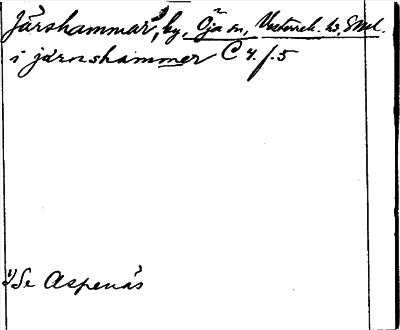 Järshammar¹⁾, by, Öja sn, Västerrek. hd, Sml.
i järnshammer C 4. f. 5
¹⁾ Se Aspenäs